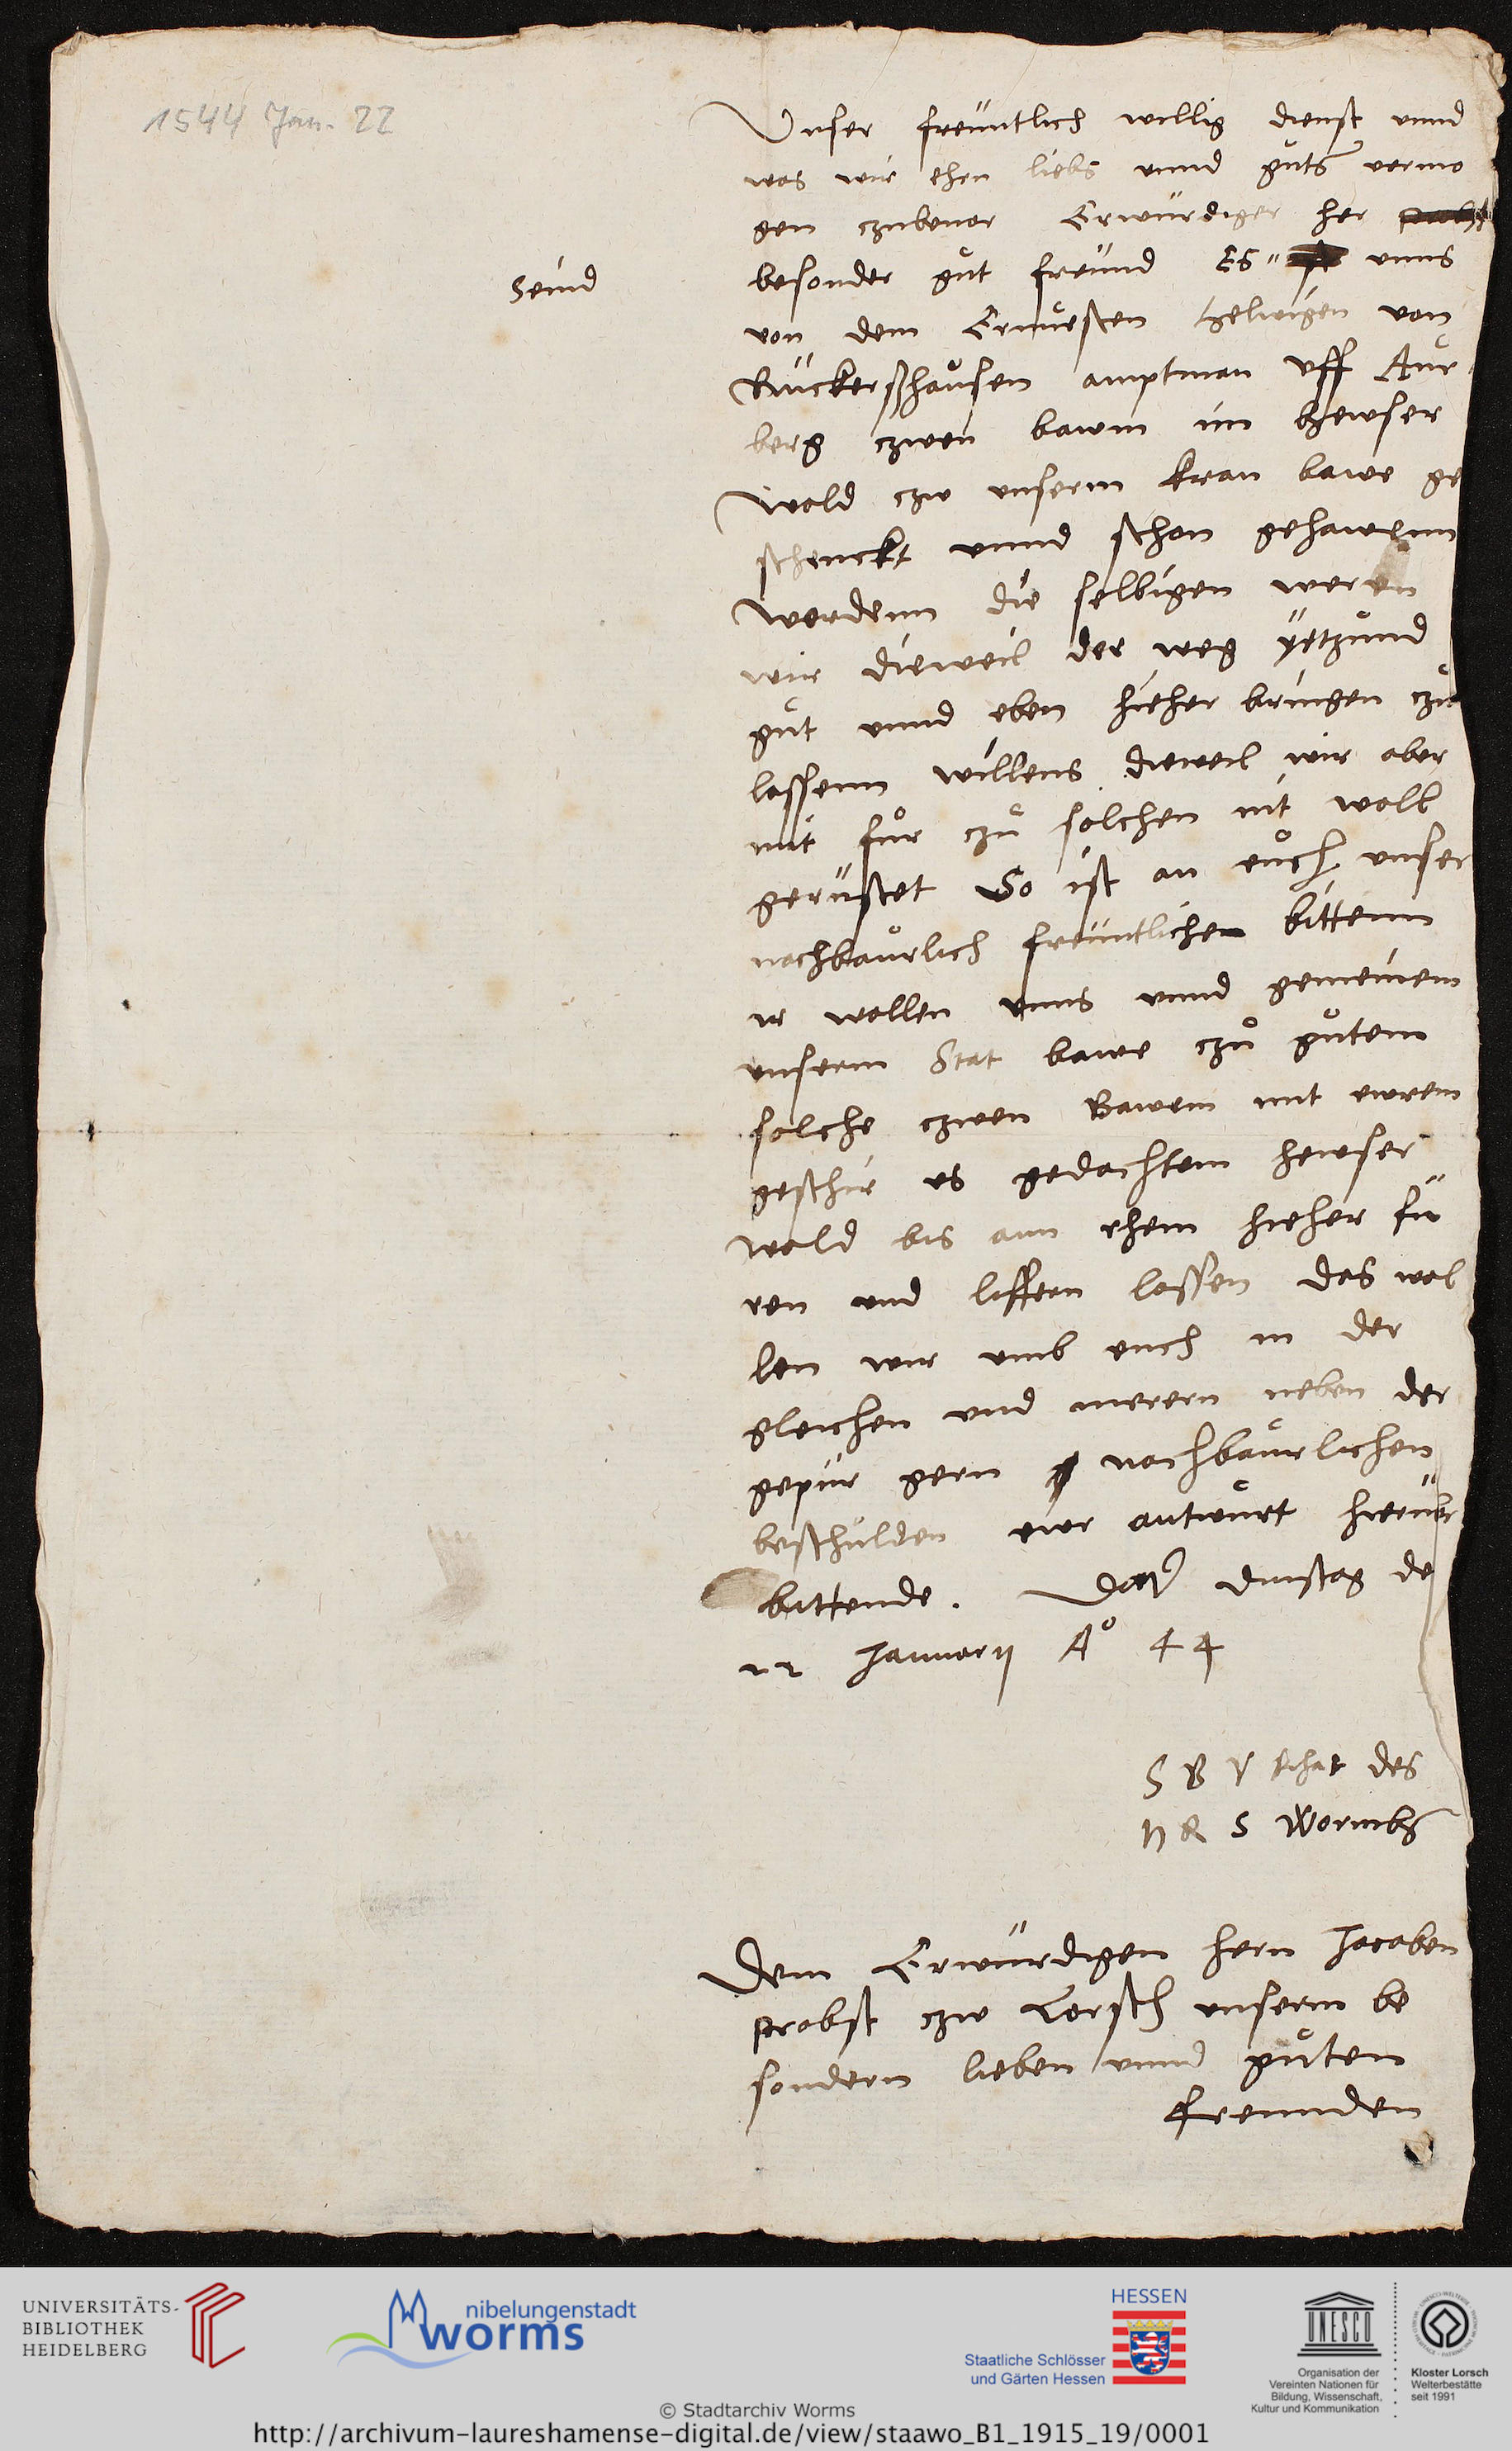 1544 Jan. 22
Vnser freuntlich willig dienst vnnd
was wir ehrn liebs vnnd guts vermo
gen czubeuor Erwürdiger her probst
besonder gut freund Es vnns
Seind
von dem Ernuesten Helwigen von
Rückerßhausen amptman vff Aur
berg czwen bawm im Hewser
wald czw vnserm kran bawe ge
schenckt vnnd schon gehawenn
wordenn die selbigen weren
wir dieweil der weg yetzund
gut vnnd eben hieher bringen czu
lassenn willens dieweil wir aber
mit fur czu solchen nit woll
gerustet So ist an euch vnser
nachbaurlich freuntlichen bittenn
ir wollen vnns vnnd gemeinem
vnserm Stat bawe czu gutem
solche czwen Bawem mit ewrem
geschir vs gedachtem hewser
wald bis ann rhein hieher fü
ren vnd liffern lassen das wol
len wir vmb euch in der
gleichen vnd merern neben der
gepur gern nachbaurlichen
beschulden ewr antwurt hierüber
bittende . Dat dinstag de
22 Januarij Ao 44
S B V rhat des
H R S Wormbs
Dem Erwürdigen hern Jacoben
probst czw Lorsch vnserm be
sondern lieben vnnd guten
freunden
UNIVERSITÄTS-
BIBLIOTHEK
HEIDELBERG
nibelungenstadt
worms
HESSEN
Staatliche Schlösser
und Gärten Hessen
UNESCO
Organisation der
Vereinten Nationen für
Bildung, Wissenschaft,
Kultur und Kommunikation
Kloster Lorsch
Welterbestätte
seit 1991
© Stadtarchiv Worms
http://archivum-laureshamense-digital.de/view/staawo_B1_1915_19/0001